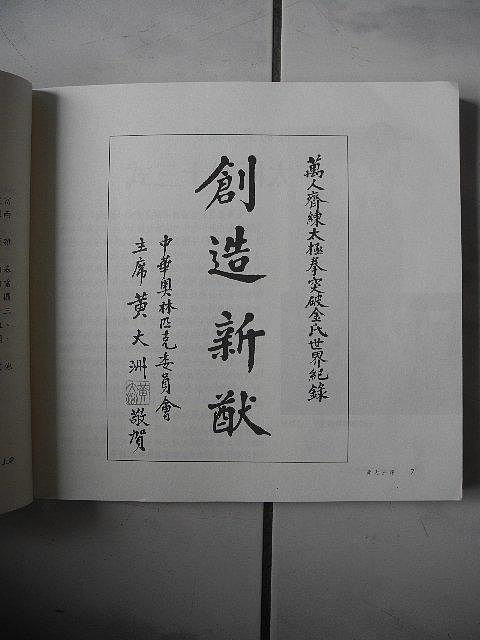 萬人齊練太極拳突破金氏世界紀錄
創造新猷
中華奧林匹克委員會
主席黃大洲
敬賀
7